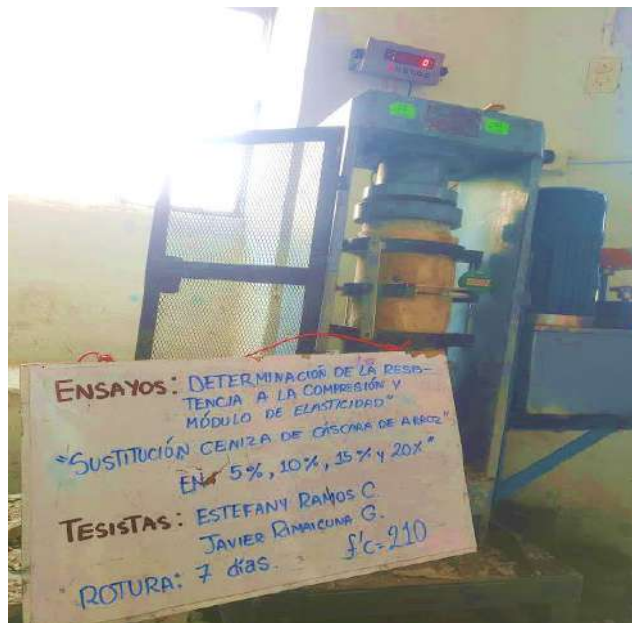 0
ENSAYOS: DETERMINACIÓN DE LA RESIS-
TENCIA A LA COMPRESIÓN Y
MÓDULO DE ELASTICIDAD"
"SUSTITUCIÓN CENIZA DE CÁSCARA DE ARROZ"
EN 5%, 10%, 15% y 20%"
TESISTAS: ESTEFANY RAMOS C.
JAVIER RIMAICUNA G.
ROTURA: 7 días. f'c=210